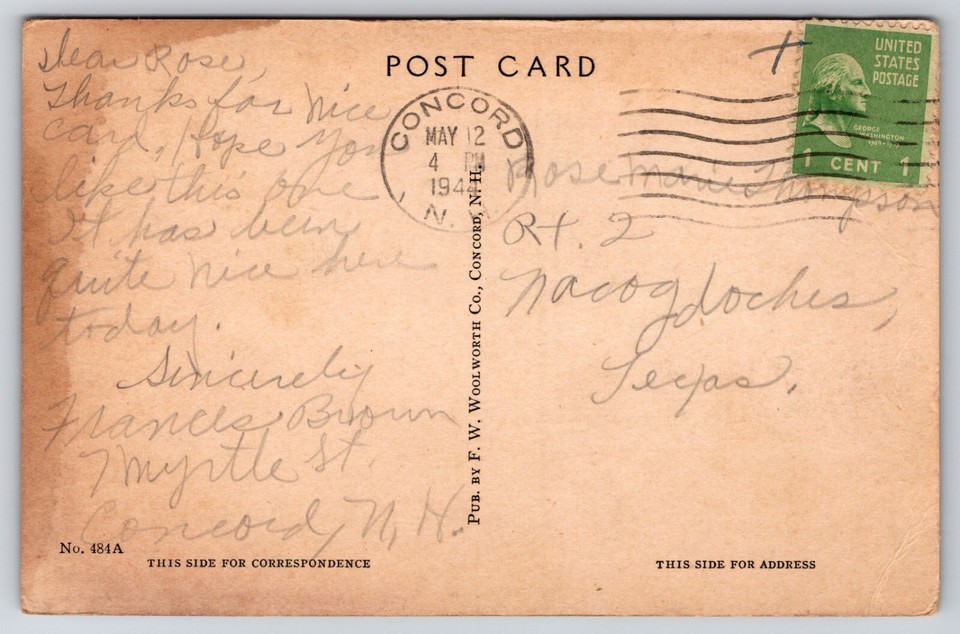 POST CARD
Dear Rose,
Thanks for nice
card, Hope you
like this one
It has been
quite nice here
today.
Sincerely
Frances Brown
Myrtle St.
Concord, N. H.
No. 484A
THIS SIDE FOR CORRESPONDENCE
PUB. BY F. W. WOOLWORTH CO., CONCORD, N. H.
CONCORD
MAY 12
4 PM
1944
N.
UNITED
STATES
POSTAGE
GEORGE
WASHINGTON
1 CENT 1
Rose Marie Thompson
Rt. 2
Nacogdoches,
Texas.
THIS SIDE FOR ADDRESS